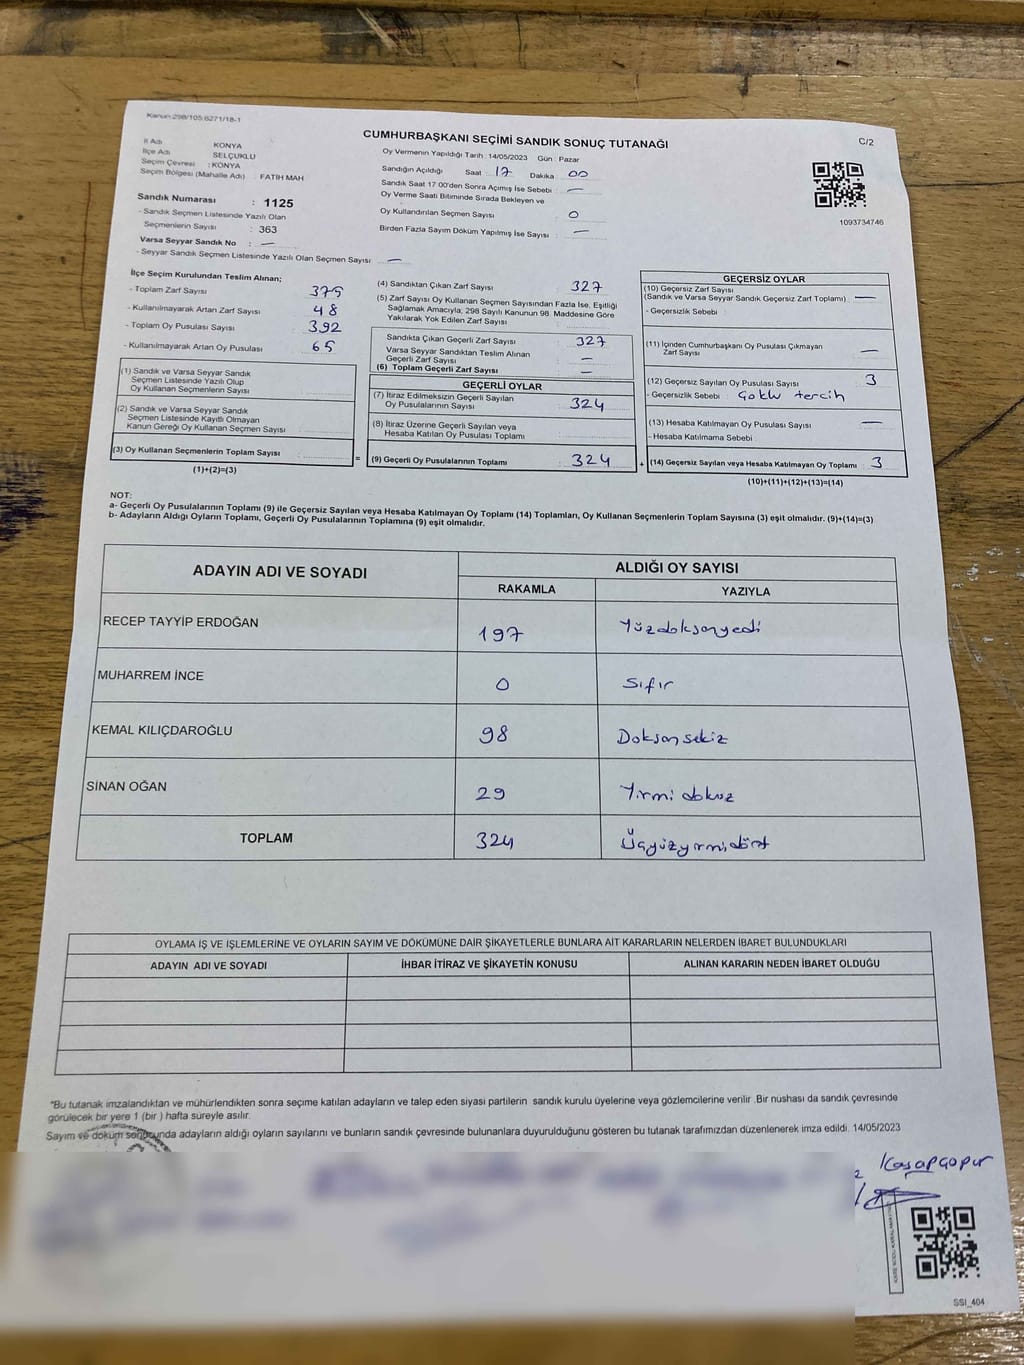 Kanun:298/105;6271/18-1
CUMHURBAŞKANI SEÇİMİ SANDIK SONUÇ TUTANAĞI
C/2
İl Adı KONYA
İlçe Adı SELÇUKLU
Seçim Çevresi : KONYA
Seçim Bölgesi (Mahalle Adı) FATIH MAH
Sandık Numarası : 1125
- Sandık Seçmen Listesinde Yazılı Olan
Seçmenlerin Sayısı : 363
Varsa Seyyar Sandık No : —
- Seyyar Sandık Seçmen Listesinde Yazılı Olan Seçmen Sayısı —
Oy Vermenin Yapıldığı Tarih : 14/05/2023 Gün : Pazar
Sandığın Açıldığı Saat : 17 Dakika : 00
Sandık Saat 17.00'den Sonra Açımış İse Sebebi : —
Oy Verme Saati Bitiminde Sırada Bekleyen ve
Oy Kullandırılan Seçmen Sayısı : 0
Birden Fazla Sayım Döküm Yapılmış İse Sayısı : —
1093734746
İlçe Seçim Kurulundan Teslim Alınan;
- Toplam Zarf Sayısı 375
- Kullanılmayarak Artan Zarf Sayısı 48
- Toplam Oy Pusulası Sayısı 392
- Kullanılmayarak Artan Oy Pusulası 65
(1) Sandık ve Varsa Seyyar Sandık
Seçmen Listesinde Yazılı Olup
Oy Kullanan Seçmenlerin Sayısı
(2) Sandık ve Varsa Seyyar Sandık
Seçmen Listesinde Kayıtlı Olmayan
Kanun Gereği Oy Kullanan Seçmen Sayısı
(3) Oy Kullanan Seçmenlerin Toplam Sayısı
(1)+(2)=(3)
(4) Sandıktan Çıkan Zarf Sayısı 327
(5) Zarf Sayısı Oy Kullanan Seçmen Sayısından Fazla İse, Eşitliği
Sağlamak Amacıyla; 298 Sayılı Kanunun 98. Maddesine Göre
Yakılarak Yok Edilen Zarf Sayısı
Sandıkta Çıkan Geçerli Zarf Sayısı 327
Varsa Seyyar Sandıktan Teslim Alınan
Geçerli Zarf Sayısı —
(6) Toplam Geçerli Zarf Sayısı —
GEÇERLİ OYLAR
(7) İtiraz Edilmeksizin Geçerli Sayılan
Oy Pusulalarının Sayısı 324
(8) İtiraz Üzerine Geçerli Sayılan veya
Hesaba Katılan Oy Pusulası Toplamı
= (9) Geçerli Oy Pusulalarının Toplamı 324
GEÇERSİZ OYLAR
(10) Geçersiz Zarf Sayısı
(Sandık ve Varsa Seyyar Sandık Geçersiz Zarf Toplamı) —
- Geçersizlik Sebebi
(11) İçinden Cumhurbaşkanı Oy Pusulası Çıkmayan
Zarf Sayısı —
(12) Geçersiz Sayılan Oy Pusulası Sayısı 3
- Geçersizlik Sebebi tercih
(13) Hesaba Katılmayan Oy Pusulası Sayısı —
- Hesaba Katılmama Sebebi
+ (14) Geçersiz Sayılan veya Hesaba Katılmayan Oy Toplamı 3
(10)+(11)+(12)+(13)=(14)
NOT:
a- Geçerli Oy Pusulalarının Toplamı (9) ile Geçersiz Sayılan veya Hesaba Katılmayan Oy Toplamı (14) Toplamları, Oy Kullanan Seçmenlerin Toplam Sayısına (3) eşit olmalıdır. (9)+(14)=(3)
b- Adayların Aldığı Oyların Toplamı, Geçerli Oy Pusulalarının Toplamına (9) eşit olmalıdır.
ADAYIN ADI VE SOYADI
ALDIĞI OY SAYISI
RAKAMLA YAZIYLA
RECEP TAYYİP ERDOĞAN 197 Yüzdoksanyedi
MUHARREM İNCE 0 Sıfır
KEMAL KILIÇDAROĞLU 98 Doksansekiz
SİNAN OĞAN 29 Yirmi dokuz
TOPLAM 324 Üçyüzyirmidört
OYLAMA İŞ VE İŞLEMLERİNE VE OYLARIN SAYIM VE DÖKÜMÜNE DAİR ŞİKAYETLERLE BUNLARA AİT KARARLARIN NELERDEN İBARET BULUNDUKLARI
ADAYIN ADI VE SOYADI İHBAR İTİRAZ VE ŞİKAYETİN KONUSU ALINAN KARARIN NEDEN İBARET OLDUĞU
*Bu tutanak imzalandıktan ve mühürlendikten sonra seçime katılan adayların ve talep eden siyasi partilerin sandık kurulu üyelerine veya gözlemcilerine verilir .Bir nüshası da sandık çevresinde
görülecek bir yere 1 (bir ) hafta süreyle asılır.
Sayım ve döküm sonucunda adayların aldığı oyların sayılarını ve bunların sandık çevresinde bulunanlara duyurulduğunu gösteren bu tutanak tarafımızdan düzenlenerek imza edildi. 14/05/2023
SSI_404